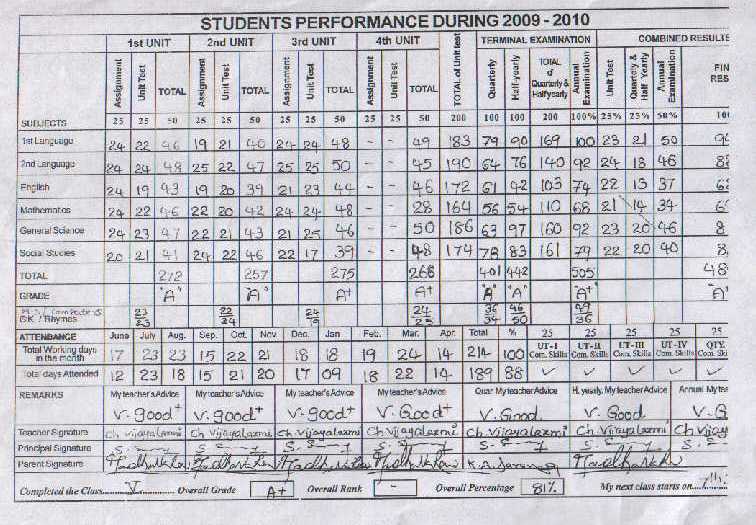 STUDENTS PERFORMANCE DURING 2009 - 2010
1st UNIT 2nd UNIT 3rd UNIT 4th UNIT TOTAL of Unit test TERMINAL EXAMINATION COMBINED RESULTS
Assignment Unit Test TOTAL Assignment Unit Test TOTAL Assignment Unit Test TOTAL Assignment Unit Test TOTAL Quarterly Half-yearly TOTAL of Quarterly & Halfyearly Annual Examination Unit Test Quarterly & Half Yearly Annual Examination FIN RES
SUBJECTS 25 25 50 25 25 50 25 25 50 25 25 50 200 100 100 200 100% 25% 25% 50% 100
1st Language 24 22 46 19 21 40 24 24 48 - - 49 183 79 90 169 100 23 21 50
2nd Language 24 24 48 25 22 47 25 25 50 - - 45 190 64 76 140 92 24 18 46
English 24 19 43 19 20 39 21 23 44 - - 46 172 61 42 103 74 22 13 37
Mathematics 24 22 46 22 20 42 24 24 48 - - 28 164 56 54 110 68 21 14 34
General Science 24 23 47 22 21 43 21 25 46 - - 50 186 63 97 160 92 23 20 46
Social Studies 20 21 41 24 22 46 22 17 39 - - 48 174 78 83 161 79 22 20 40
TOTAL 272 257 275 266 401 442 505 48
GRADE "A" "A" A+ A+ "A" "A" A+ "A"
G.K. / Rhymes 23 23 22 24 24 24 23 36 34 46 50 49 36
ATTENDANCE June July Aug. Sep. Oct. Nov. Dec. Jan Feb. Mar. Apr. Total % UT-I Com. Skills UT-II Com. Skills UT-III Com. Skills UT-IV Com. Skills QTY. Com. Ski
Total Working days in the month 17 23 23 15 22 21 18 18 19 24 14 214 100
Total days Attended 12 23 18 15 21 20 17 09 18 22 14 189 88 ✓ ✓ ✓ ✓ ✓
REMARKS My teacher's Advice My teacher's Advice My teacher's Advice My teacher's Advice Quar. My teacher Advice H. yearly, My teacher Advice Annual My tea
V. good+ V. good+ V. good+ V. Good+ V. Good V. Good V. G
Teacher Signature Ch Vijayalaxmi Ch Vijayalaxmi Ch. Vijayalaxmi Ch. Vijayalaxmi Ch. Vijayalaxmi Ch. Vijayalaxmi Ch. Vijay
Principal Signature
Parent Signature
Completed the Class V Overall Grade A+ Overall Rank - Overall Percentage 81% My next class starts on 7th